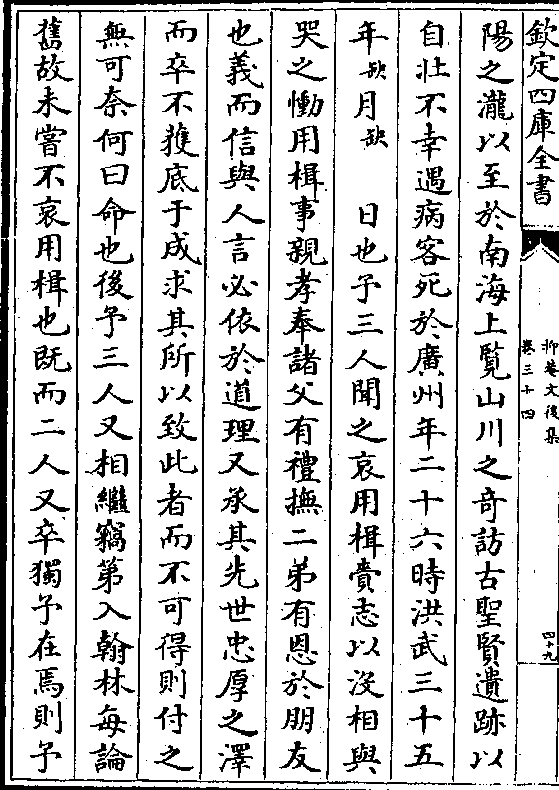 欽定四庫全書
抑菴文後集
卷三十四
四十九
陽之瀧以至於南海上覧山川之奇訪古聖賢遺跡以
自壯不幸遇病客死於廣州年二十六時洪武三十五
年缺月缺　日也予三人聞之哀用楫賫志以沒相與
哭之慟用楫事親孝奉諸父有禮撫二弟有恩於朋友
也義而信與人言必依於道理又承其先世忠厚之澤
而卒不獲底于成求其所以致此者而不可得則付之
無可奈何曰命也後予三人又相繼竊第入翰林每論
舊故未嘗不哀用楫也既而二人又卒獨予在焉則予